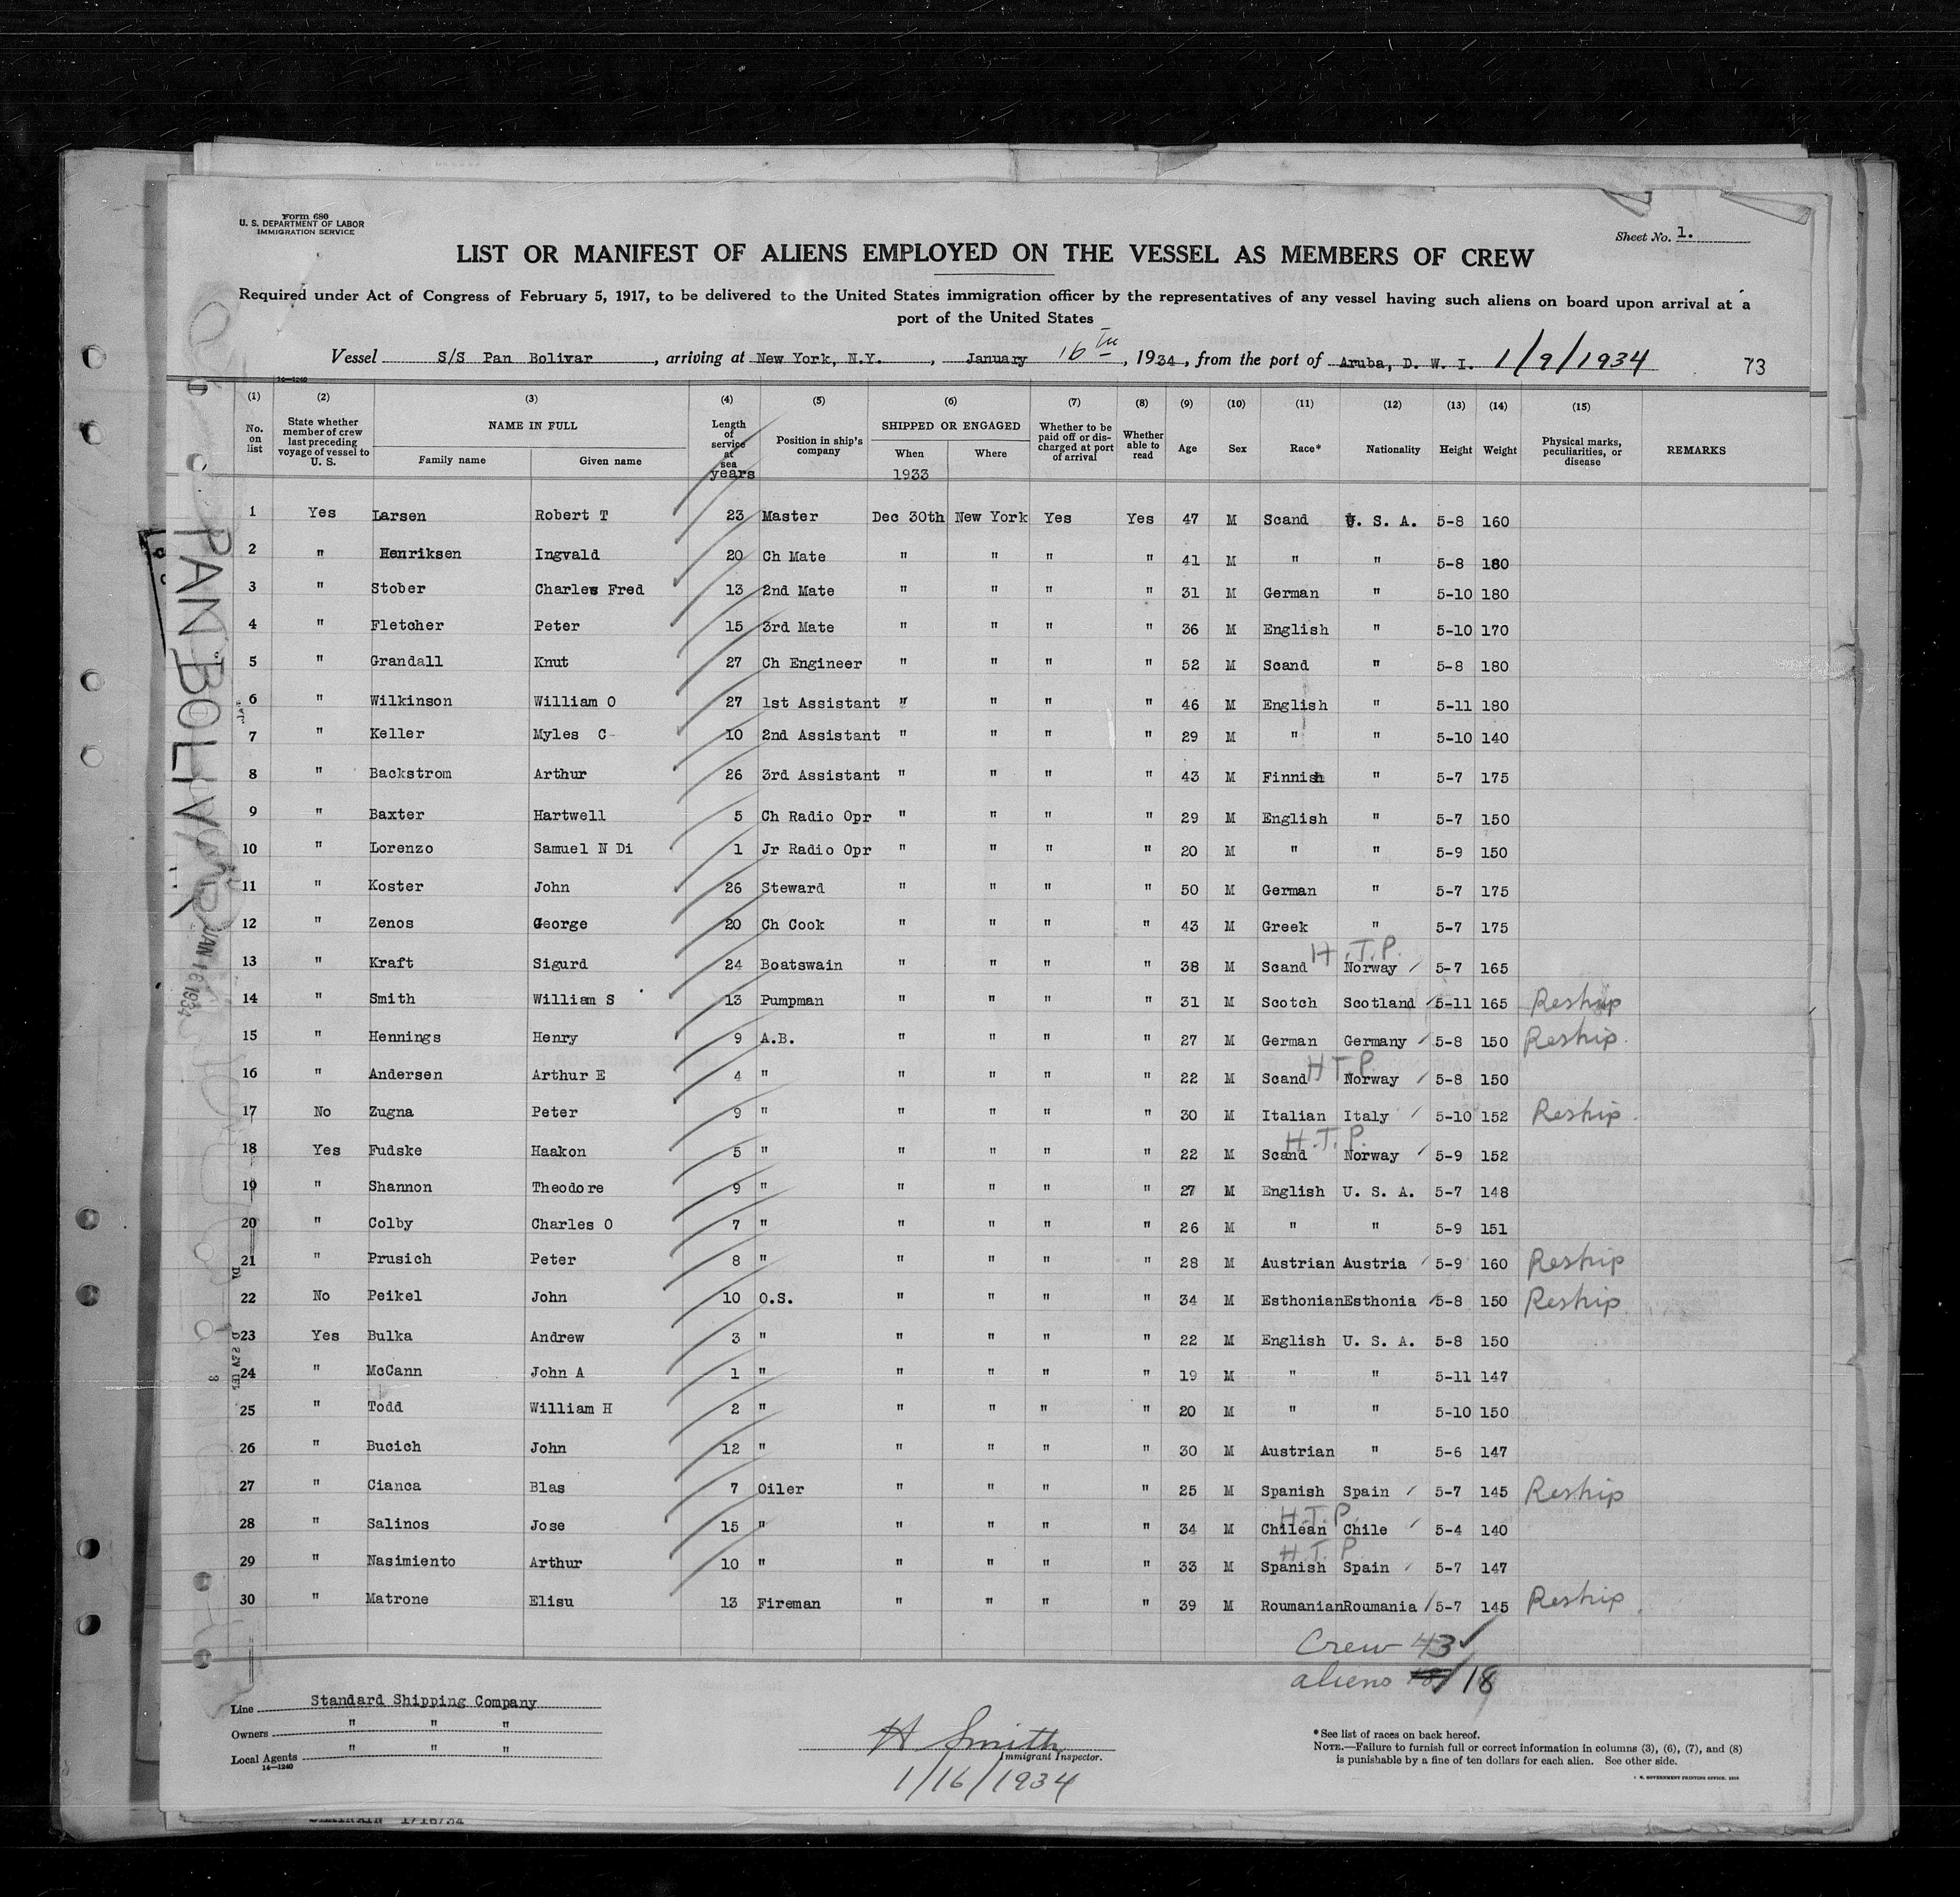 Form 680
U. S. DEPARTMENT OF LABOR
IMMIGRATION SERVICE
Sheet No. 1.
LIST OR MANIFEST OF ALIENS EMPLOYED ON THE VESSEL AS MEMBERS OF CREW
Required under Act of Congress of February 5, 1917, to be delivered to the United States immigration officer by the representatives of any vessel having such aliens on board upon arrival at a
port of the United States
Vessel S/S Pan Bolivar, arriving at New York, N.Y., January 16th, 1934, from the port of Aruba, D. W. I. 1/9/1934 73
14—1240
(1) No. on list (2) State whether member of crew last preceding voyage of vessel to U. S. (3) NAME IN FULL Family name Given name (4) Length of service at sea years (5) Position in ship's company (6) SHIPPED OR ENGAGED When 1933 Where (7) Whether to be paid off or discharged at port of arrival (8) Whether able to read (9) Age (10) Sex (11) Race* (12) Nationality (13) Height (14) Weight (15) Physical marks, peculiarities, or disease REMARKS
1 Yes Larsen Robert T 23 Master Dec 30th New York Yes Yes 47 M Scand U. S. A. 5-8 160
2 " Henriksen Ingvald 20 Ch Mate " " " " 41 M " " 5-8 180
3 " Stober Charles Fred 13 2nd Mate " " " " 31 M German " 5-10 180
4 " Fletcher Peter 15 3rd Mate " " " " 36 M English " 5-10 170
5 " Grandall Knut 27 Ch Engineer " " " " 52 M Scand " 5-8 180
6 " Wilkinson William O 27 1st Assistant " " " " 46 M English " 5-11 180
7 " Keller Myles C 10 2nd Assistant " " " " 29 M " " 5-10 140
8 " Backstrom Arthur 26 3rd Assistant " " " " 43 M Finnish " 5-7 175
9 " Baxter Hartwell 5 Ch Radio Opr " " " " 29 M English " 5-7 150
10 " Lorenzo Samuel N Di 1 Jr Radio Opr " " " " 20 M " " 5-9 150
11 " Koster John 26 Steward " " " " 50 M German " 5-7 175
12 " Zenos George 20 Ch Cook " " " " 43 M Greek " 5-7 175
13 " Kraft Sigurd 24 Boatswain " " " " 38 M Scand H.T.P. Norway 5-7 165
14 " Smith William S 13 Pumpman " " " " 31 M Scotch Scotland 5-11 165 Reship
15 " Hennings Henry 9 A.B. " " " " 27 M German Germany 5-8 150 Reship
16 " Andersen Arthur E 4 " " " " " 22 M Scand H T.P. Norway 5-8 150
17 No Zugna Peter 9 " " " " " 30 M Italian Italy 5-10 152 Reship
18 Yes Fudske Haakon 5 " " " " " 22 M Scand H.T.P. Norway 5-9 152
19 " Shannon Theodore 9 " " " " " 27 M English U. S. A. 5-7 148
20 " Colby Charles O 7 " " " " " 26 M " " 5-9 151
21 " Prusich Peter 8 " " " " " 28 M Austrian Austria 5-9 160 Reship
22 No Peikel John 10 O.S. " " " " 34 M Esthonian Esthonia 5-8 150 Reship
23 Yes Bulka Andrew 3 " " " " " 22 M English U. S. A. 5-8 150
24 " McCann John A 1 " " " " " 19 M " " 5-11 147
25 " Todd William H 2 " " " " " 20 M " " 5-10 150
26 " Bucich John 12 " " " " " 30 M Austrian " 5-6 147
27 " Cianca Blas 7 Oiler " " " " 25 M Spanish Spain 5-7 145 Reship
28 " Salinos Jose 15 " " " " " 34 M Chilean H.T.P. Chile 5-4 140
29 " Nasimiento Arthur 10 " " " " " 33 M Spanish H.T.P. Spain 5-7 147
30 " Matrone Elisu 13 Fireman " " " " 39 M Roumanian Roumania 5-7 145 Reship
Crew 43
aliens 18
Line Standard Shipping Company
Owners " " "
Local Agents " " "
14—1240
H Smith
Immigrant Inspector.
1/16/1934
*See list of races on back hereof.
NOTE.—Failure to furnish full or correct information in columns (3), (6), (7), and (8)
is punishable by a fine of ten dollars for each alien. See other side.
PAN BOLIVAR
JAN 16 1934